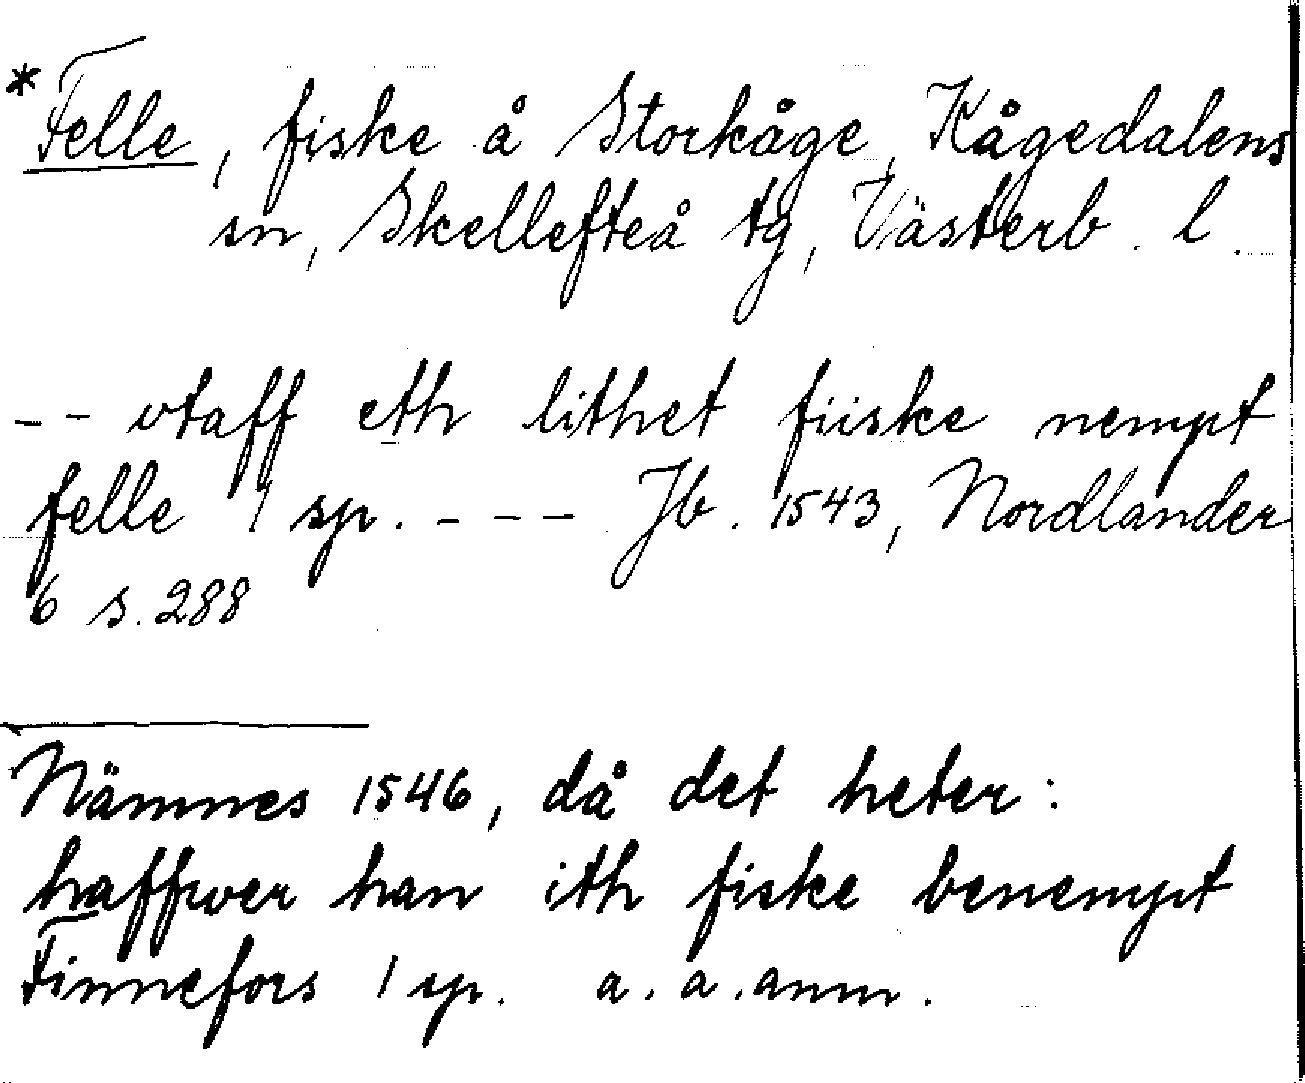 *Felle, fiske å Storkåge, Kågedalens
sn, Skellefteå tg, Västerb. l.
-- vtaff eth lithet fiiske nempt
felle 1 sp. --- Jb. 1543, Nordlander
6 s. 288
Nämnes 1546, då det heter:
haffwer han ith fiske benempt
Finnefors 1 sp. a. a. anm.